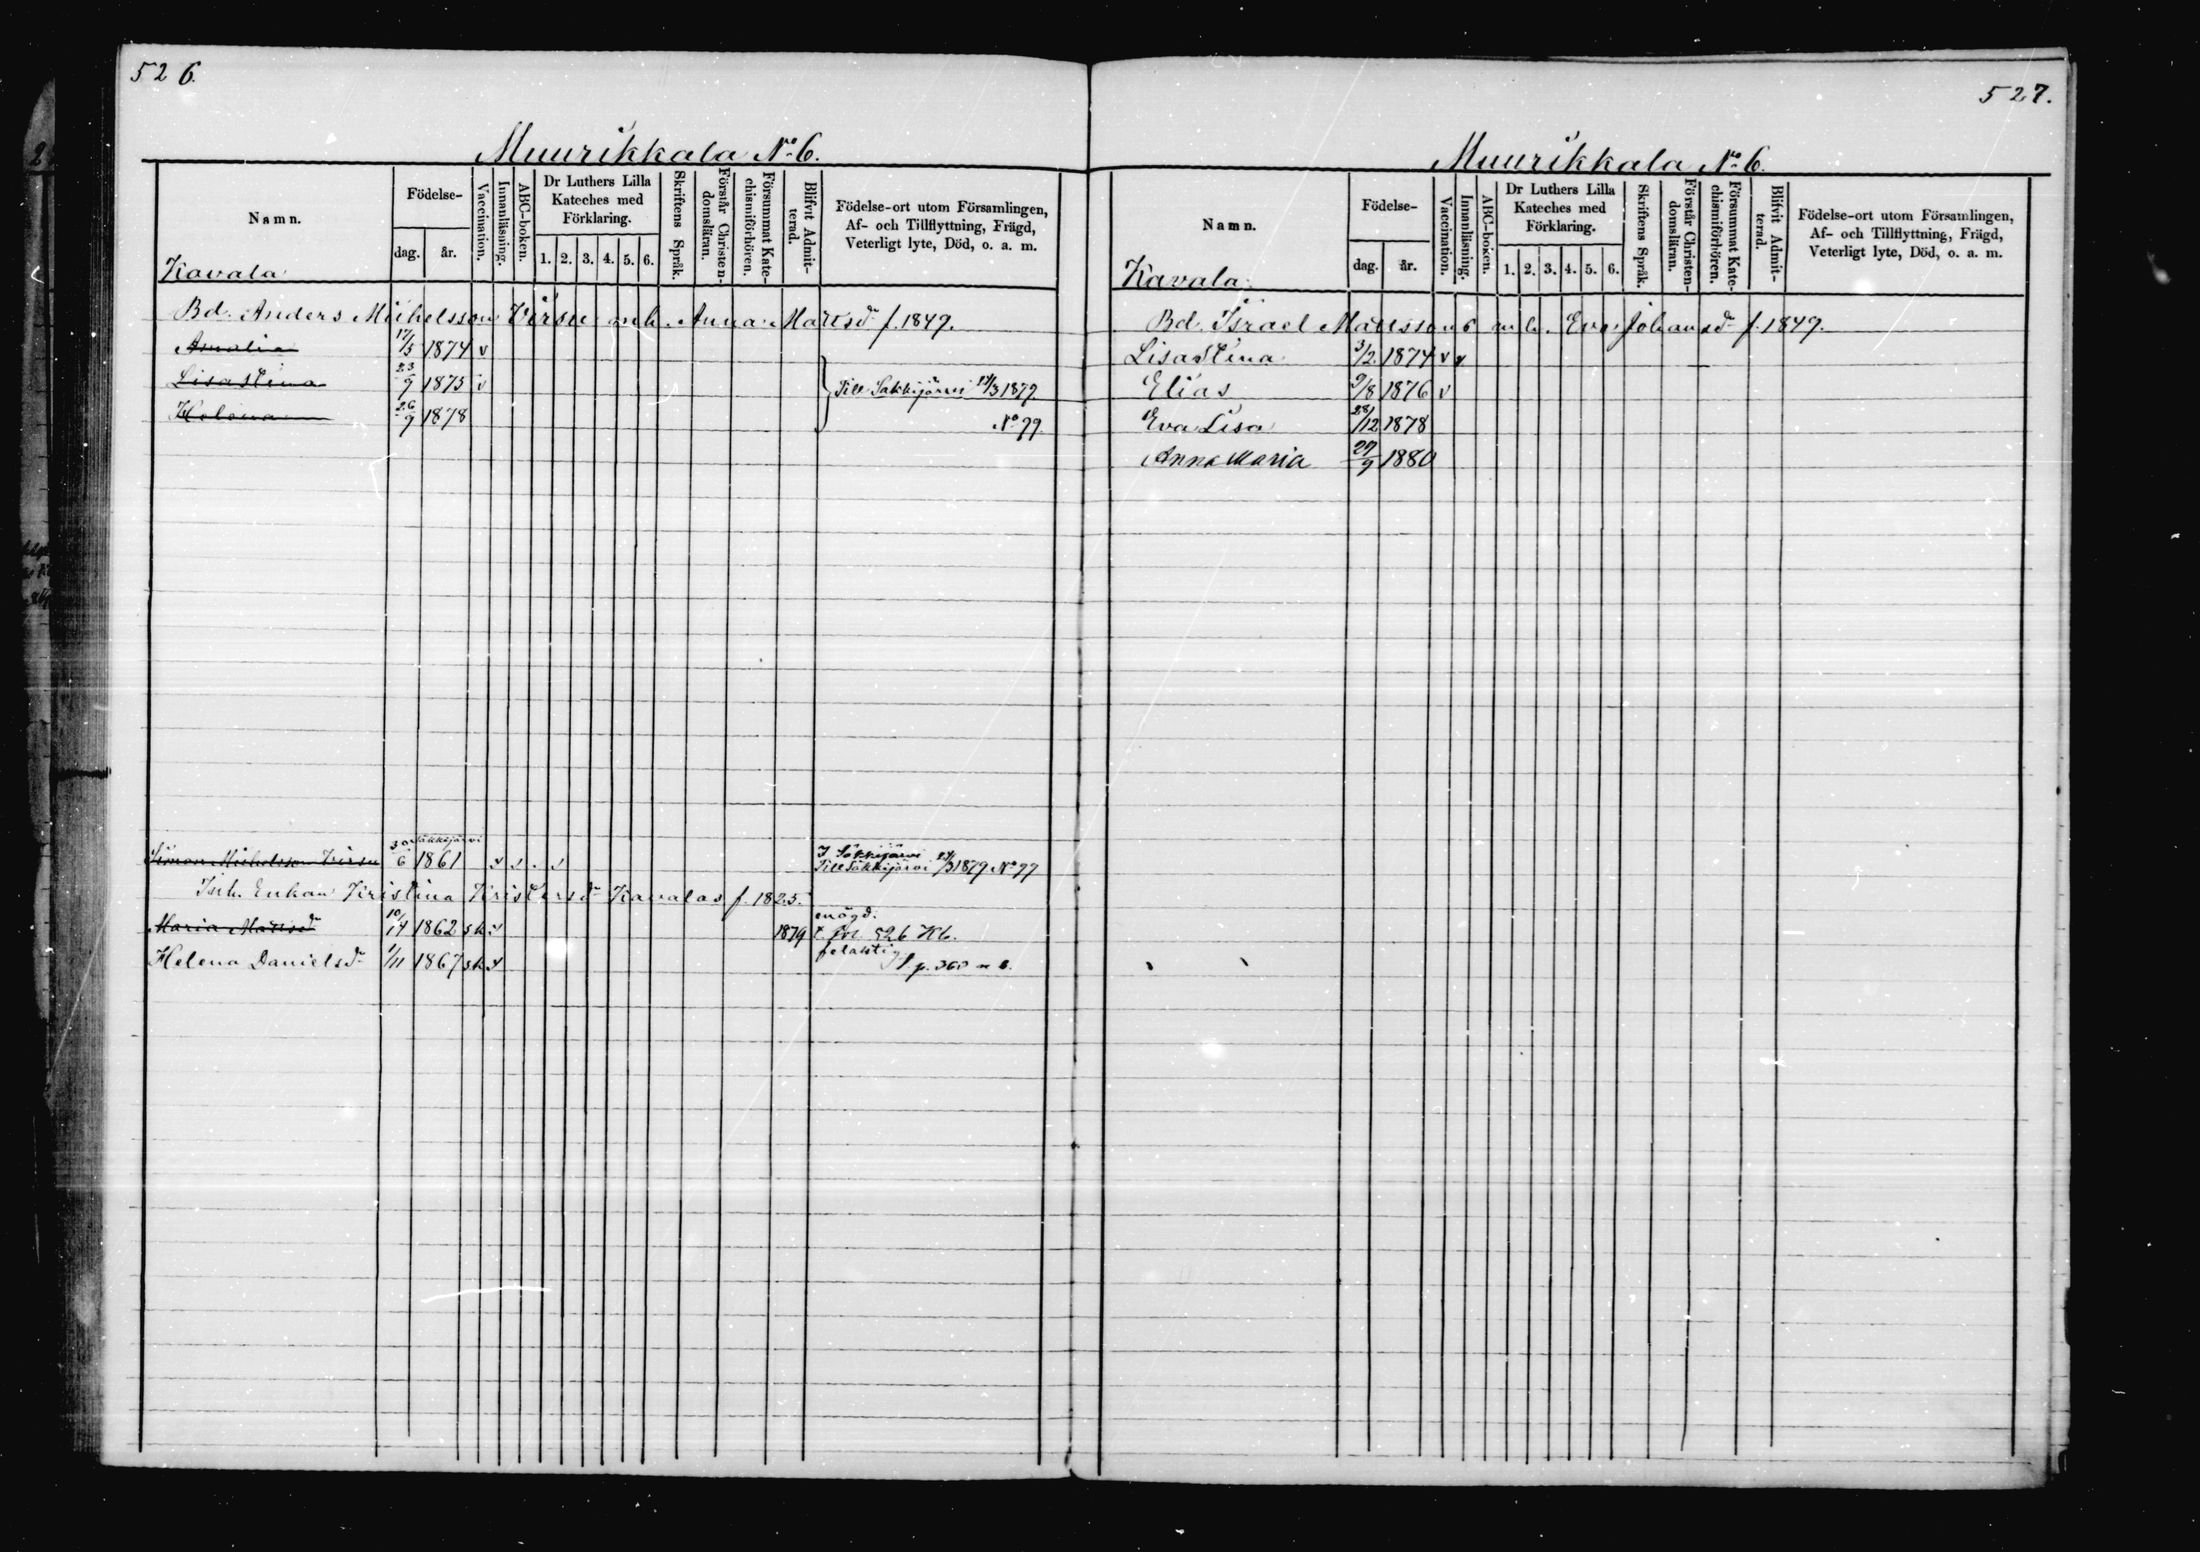 526.
Muurikkala No 6.
Namn.
Födelse-
dag.
år.
Vaccination.
Innanläsning.
ABC-boken.
Dr Luthers Lilla
Kateches med
Förklaring.
1. 2. 3. 4. 5. 6.
Skriftens Språk.
Förstår Christen-
domsläran.
Försummat Kate-
chismiförhören.
Blifvit Admit-
terad.
Födelse-ort utom Församlingen,
Af- och Tillflyttning, Frägd,
Veterligt lyte, Död, o. a. m.
Kavala
Bd. Anders Michelsson Virsu mh. Anna Martsdr f. 1849.
Amalia 17/5 1874 v
Lisa Stina 23/9 1875 v Till Säkkijärvi 1879
Helena 26/9 1878 No 99
Säkkijärvi
Simon Michelsson Virsu 30/6 1861 I Säkkijärvi
Till Säkkijärvi 1879 No 99
Inh. Enkan Kristina Kristersdr Kavalas f. 1825.
Maria Mattsdr 1862 sk 1879 526 Kb.
Helena Danielsdr 1/11 1867 sk
527.
Muurikkala No 6.
Namn.
Födelse-
dag.
år.
Vaccination.
Innanläsning.
ABC-boken.
Dr Luthers Lilla
Kateches med
Förklaring.
1. 2. 3. 4. 5. 6.
Skriftens Språk.
Förstår Christen-
domsläran.
Försummat Kate-
chismiförhören.
Blifvit Admit-
terad.
Födelse-ort utom Församlingen,
Af- och Tillflyttning, Frägd,
Veterligt lyte, Död, o. a. m.
Kavala
Bd. Israel Mattsson mh. Eva Johansdr f. 1849.
Lisa Stina 3/2 1874 v v
Elias 9/8 1876 v
Eva Lisa 28/12 1878
Anna Maria 27/9 1880